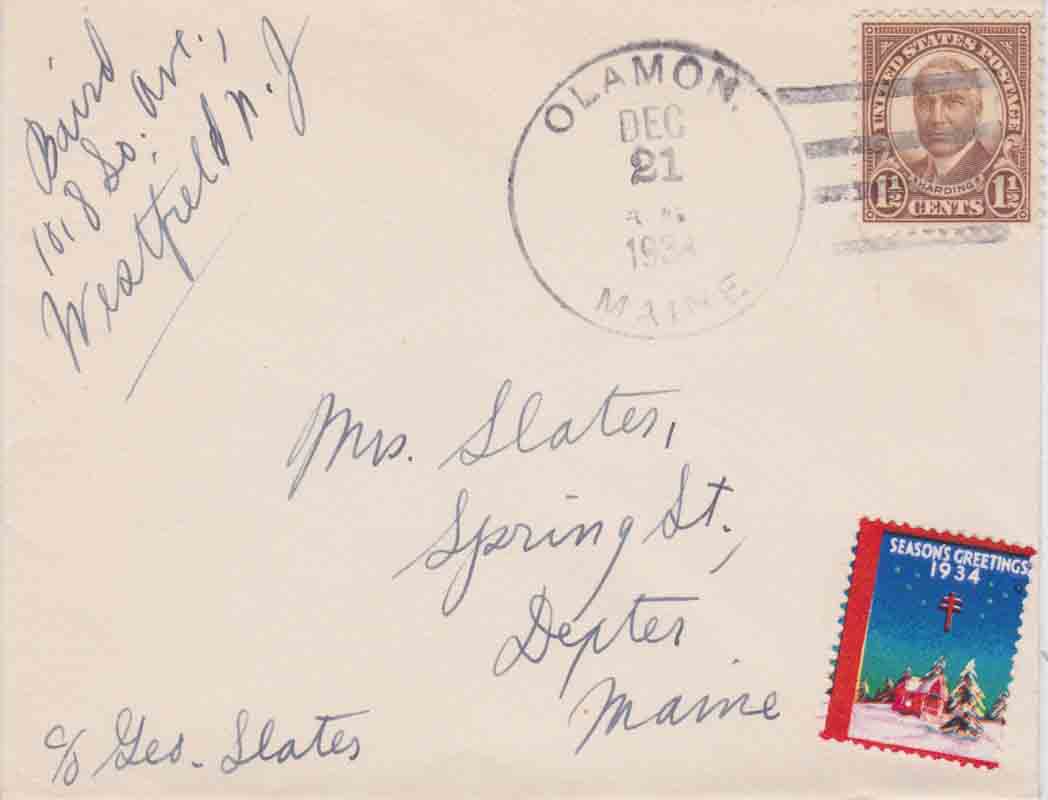 Baird
1018 So. Ave.,
Westfield N. J
OLAMON.
DEC
21
1934
MAINE
UNITED STATES POSTAGE
HARDING
1½ CENTS 1½
Mrs. Slater,
Spring St.,
Dexter
Maine
c/o Geo. Slater
SEASON'S GREETINGS
1934